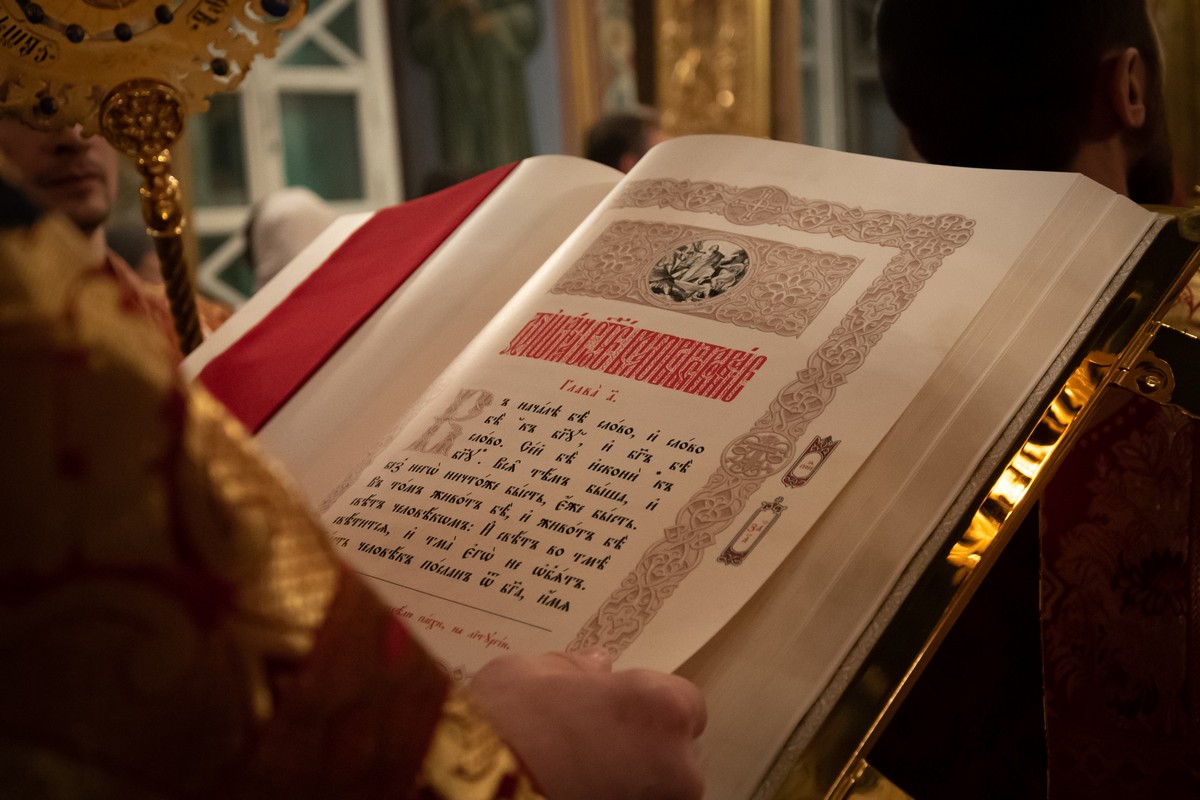 Глава̀ а҃.
Въ нача́лѣ бѣ̀ сло́во, и҆ сло́во
бѣ̀ къ бг҃ꙋ, и҆ бг҃ъ бѣ̀
сло́во. Се́й бѣ̀ и҆сконѝ къ
бг҃ꙋ. Всѧ̑ тѣ́мъ бы́ша, и҆
без̾ негѡ̀ ничто́же бы́сть, є҆́же бы́сть.
Въ то́мъ живо́тъ бѣ̀, и҆ живо́тъ бѣ̀
свѣ́тъ человѣ́кѡмъ: И҆ свѣ́тъ во тмѣ̀
свѣ́титсѧ, и҆ тма̀ є҆гѡ̀ не ѡ҆б̾ѧ́тъ.
человѣ́къ по́сланъ ѿ бг҃а, и҆́мѧ
па́схи, на літꙋргі́и.